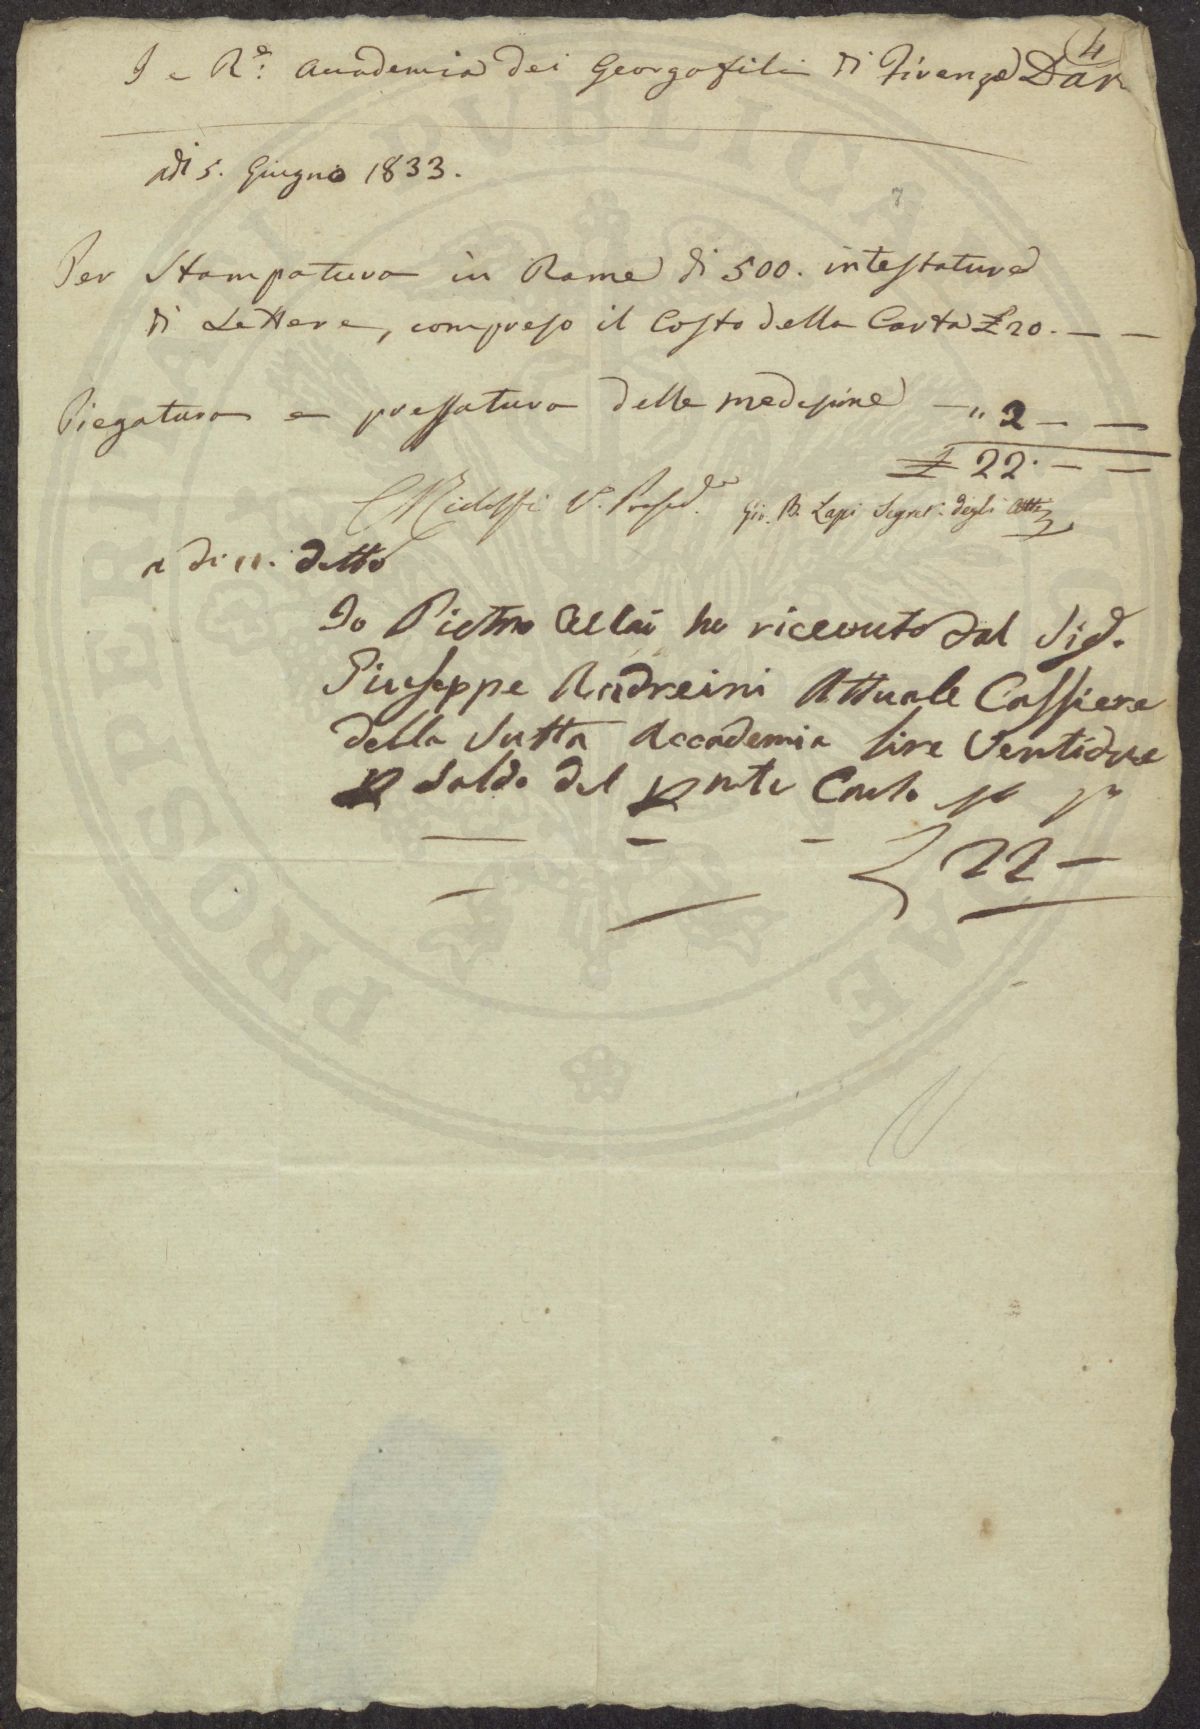 4
I e R.e Accademia dei Georgofili di Firenze Dar
adi 5. Giugno 1833.
7
Per Stampatura in Rame di 500. intestature
di Lettere, compreso il Costo della Carta £ 20. — —
Piegatura e pressatura delle medesime — " 2 — —
£ 22. — —
C Ridolfi V. Presid.e Gio. B. Lapi Segret. degli Atti
a di 11. detto
Io Pietro ho ricevuto dal Sig.
Giuseppe Andreini Attuale Cassiere
della Sudta Accademia lire Ventidue
p Saldo del pnte Conto
22 —
PROSPERITATI PVBLICAE AVGENDAE